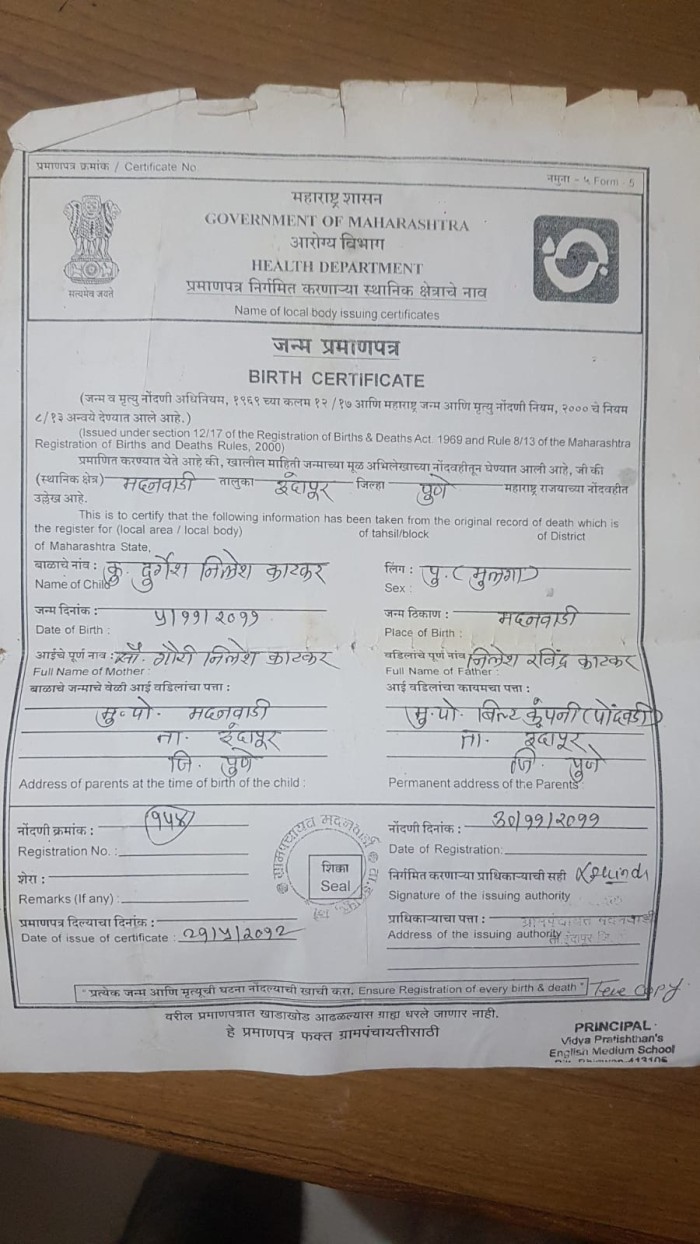 प्रमाणपत्र क्रमांक / Certificate No
नमुना - ५ Form - 5
महाराष्ट्र शासन
GOVERNMENT OF MAHARASHTRA
आरोग्य विभाग
HEALTH DEPARTMENT
सत्यमेव जयते
प्रमाणपत्र निर्गमित करणाऱ्या स्थानिक क्षेत्राचे नाव
Name of local body issuing certificates
जन्म प्रमाणपत्र
BIRTH CERTIFICATE
(जन्म व मृत्यु नोंदणी अधिनियम, १९६९ च्या कलम १२ /१७ आणि महाराष्ट्र जन्म आणि मृत्यु नोंदणी नियम, २००० चे नियम
८/१३ अन्वये देण्यात आले आहे.)
(Issued under section 12/17 of the Registration of Births & Deaths Act. 1969 and Rule 8/13 of the Maharashtra
Registration of Births and Deaths Rules, 2000)
प्रमाणित करण्यात येते आहे की, खालील माहिती जन्माच्या मूळ अभिलेखाच्या नोंदवहीतून घेण्यात आली आहे, जी की
(स्थानिक क्षेत्र) मदनवाडी तालुका इंदापूर जिल्हा पुणे महाराष्ट्र राजयाच्या नोंदवहीत
उल्लेख आहे.
This is to certify that the following information has been taken from the original record of death which is
the register for (local area / local body) of tahsil/block of District
of Maharashtra State,
बाळाचे नांव : कु. दुर्गेश निलेश काटकर लिंग : पु. (मुलगा)
Name of Child Sex :
जन्म दिनांक : ५/११/२०११ जन्म ठिकाण : मदनवाडी
Date of Birth : Place of Birth :
आईचे पूर्ण नाव : सौ. गौरी निलेश काटकर वडिलांचे पूर्ण नांव निलेश रविंद्र काटकर
Full Name of Mother : Full Name of Father :
बाळाचे जन्माचे वेळी आई वडिलांचा पत्ता : आई वडिलांचा कायमचा पत्ता :
मु.पो. मदनवाडी मु.पो. बिल्ट कंपनी (पोंदवडी)
ता. इंदापूर ता. इंदापूर
जि. पुणे जि. पुणे
Address of parents at the time of birth of the child : Permanent address of the Parents :
नोंदणी क्रमांक : १५४ नोंदणी दिनांक : ३०/११/२०११
Registration No. : Date of Registration:
ग्रामपंचायत मदनवाडी
शिक्का
Seal
शेरा : निर्गमित करणाऱ्या प्राधिकाऱ्याची सही
Remarks (If any) : Signature of the issuing authority
प्रमाणपत्र दिल्याचा दिनांक : प्राधिकाऱ्याचा पत्ता : ग्रामपंचायत मदनवाडी
Date of issue of certificate : २१/५/२०१२ Address of the issuing authority ता इंदापूर जि.
" प्रत्येक जन्म आणि मृत्यूची घटना नोंदल्याची खाची करा, Ensure Registration of every birth & death "
True Copy.
वरील प्रमाणपत्रात खाडाखोड आढळल्यास ग्राह्य धरले जाणार नाही.
हे प्रमाणपत्र फक्त ग्रामपंचायतीसाठी
PRINCIPAL
Vidya Pratishthan's
English Medium School